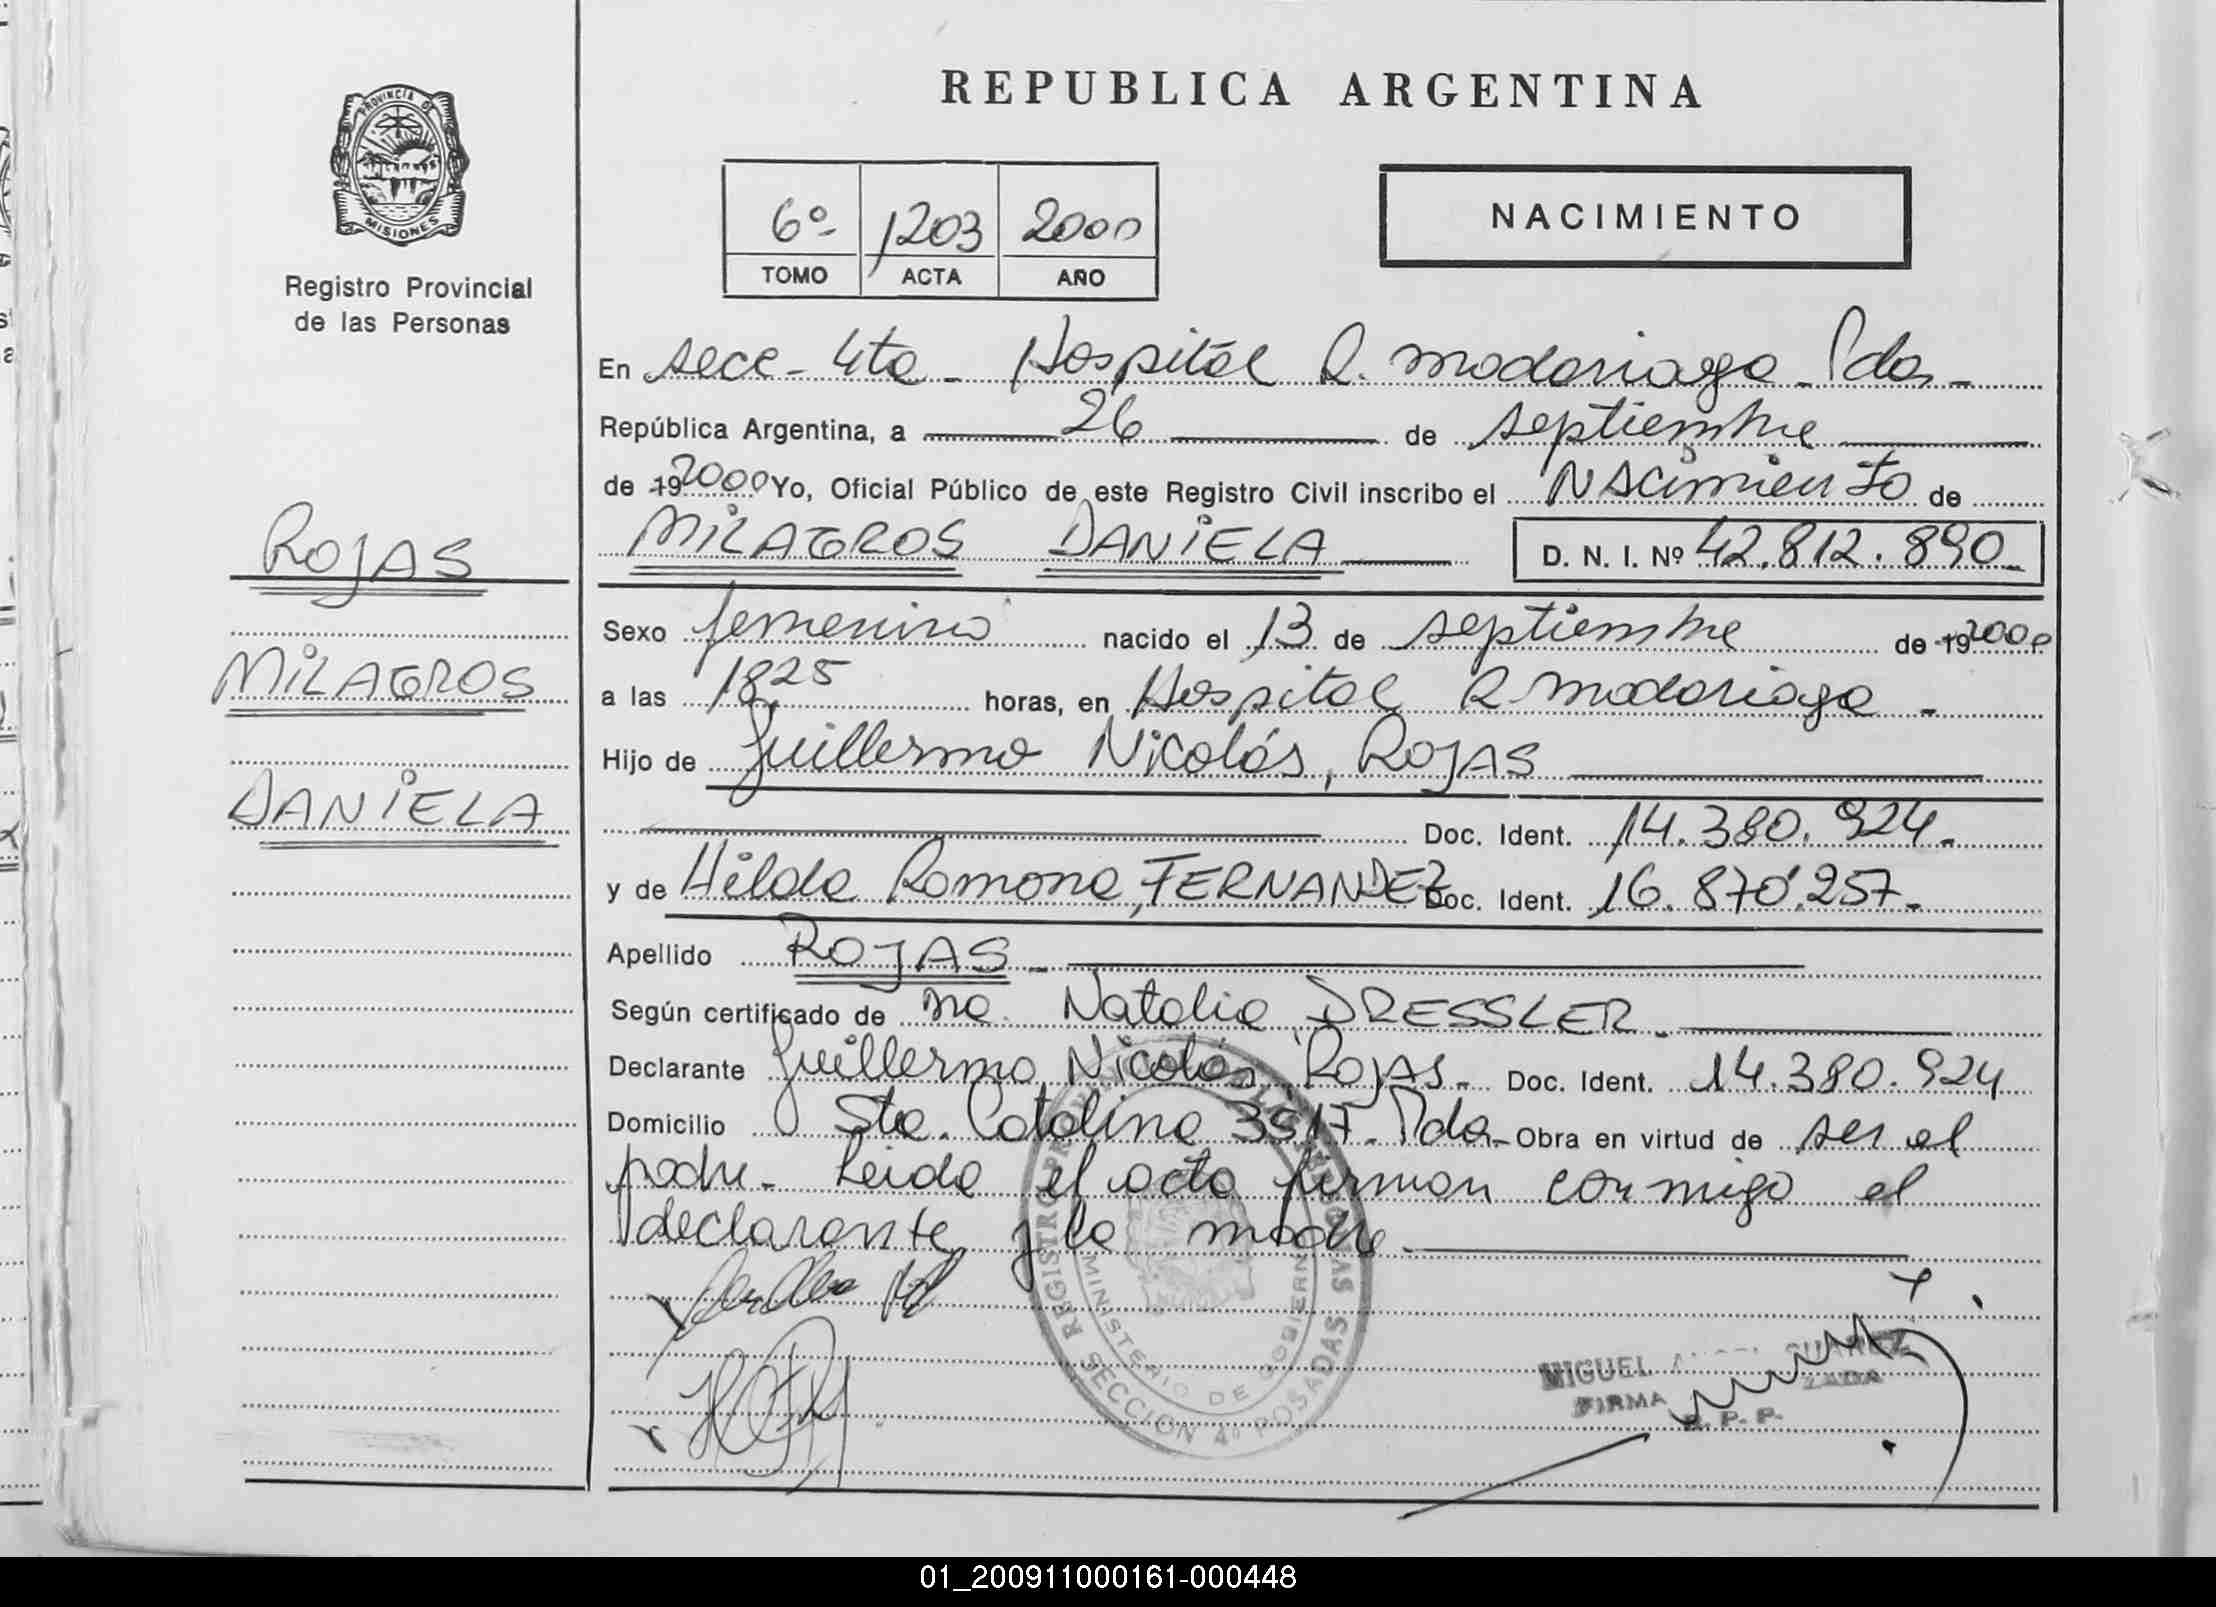 REPUBLICA ARGENTINA
PROVINCIA DE
MISIONES
Registro Provincial
de las Personas
6º 1203 2000
TOMO ACTA AÑO
NACIMIENTO
En Secc. 4ta - Hospital R. Madariaga - Pdas -
República Argentina, a 26 de septiembre
de 19 2000 Yo, Oficial Público de este Registro Civil inscribo el Nacimiento de
MILAGROS DANIELA D. N. I. Nº 42.812.890
ROJAS
MILAGROS
DANIELA
Sexo femenino nacido el 13 de septiembre de 19 2000
a las 1825 horas, en Hospital R Madariaga -
Hijo de Guillermo Nicolás, ROJAS
Doc. Ident. 14.380.924.
y de Hilda Ramona, FERNANDEZ Doc. Ident. 16.870.257.
Apellido ROJAS -
Según certificado de Natalia DRESSLER.
Declarante Guillermo Nicolás, ROJAS - Doc. Ident. 14.380.924
Domicilio Sta. Catalina 3517. Pdas - Obra en virtud de ser el
padre - Leida el acta firman conmigo el
declarante y la madre.
MINISTERIO DE GOBIERNO
SECCION 4º POSADAS
MIGUEL SUAREZ
FIRMA
R. P. P.
01_200911000161-000448